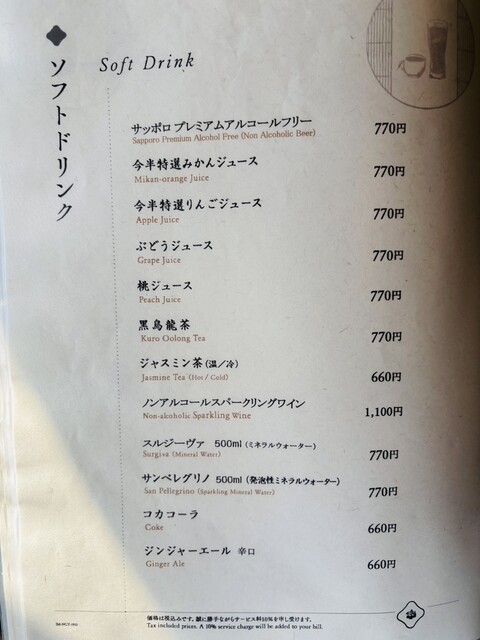 ソフトドリンク
Soft Drink
サッポロ プレミアムアルコールフリー 770円
Sapporo Premium Alcohol Free (Non Alcoholic Beer)
今半特選みかんジュース 770円
Mikan-orange Juice
今半特選りんごジュース 770円
Apple Juice
ぶどうジュース 770円
Grape Juice
桃ジュース 770円
Peach Juice
黒烏龍茶 770円
Kuro Oolong Tea
ジャスミン茶(温/冷) 660円
Jasmine Tea (Hot / Cold)
ノンアルコールスパークリングワイン 1,100円
Non-akoholic Sparkling Wine
スルジーヴァ 500ml (ミネラルウォーター) 770円
Surgiva (Mineral Water)
サンペレグリノ 500ml (発泡性ミネラルウォーター) 770円
San Pellegrino (Sparkling Mineral Water)
コカコーラ 660円
Coke
ジンジャーエール 辛口 660円
Ginger Ale
価格は税込みです。誠に勝手ながらサービス料10%を申し受けます。
Tax included prices. A 10% service charge will be added to your bill.